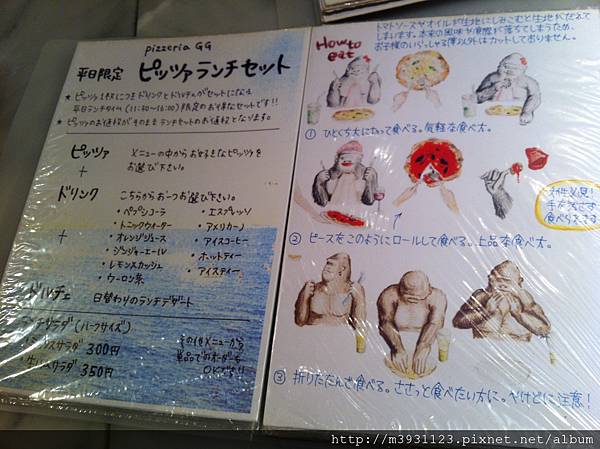 pizzeria GG
平日限定 ピッツァランチセット
★ ピッツァ1枚につきドリンクとドルチェがセットになる
平日ランチタイム(11:30~16:00)限定のお得なセットです!!
★ ピッツァのお値段がそのままランチセットのお値段となります。
ピッツァ メニューの中からお好きなピッツァを
お選び下さい。
+
ドリンク こちらからお一つお選び下さい。
・ペプシコーラ ・エスプレッソ
・トニックウォーター ・アメリカーノ
+ ・オレンジジュース ・アイスコーヒー
・ジンジャーエール ・ホットティー
・レモンスカッシュ ・アイスティー
・ウーロン茶
ドルチェ 日替わりのランチデザート
サラダ(ハーフサイズ)
サラダ 300円
サラダ 350円
その他メニューから
単品でのオーダーも
トマトソースやオイルが生地にしみこむと生地がだれて
しまいます。本来の風味や食感が落ちてしまうため、
お子様のいらっしゃる席以外はカットしておりません。
How to
eat
① ひとくち大に切って食べる。気軽な食べ方。
必見!
手を汚さず
食べられます
② ピースをこのようにロールして食べる。上品な食べ方。
③ 折りたたんで食べる。ささっと食べたい方に。やけどに注意!
http://m3931123.pixnet.net/album